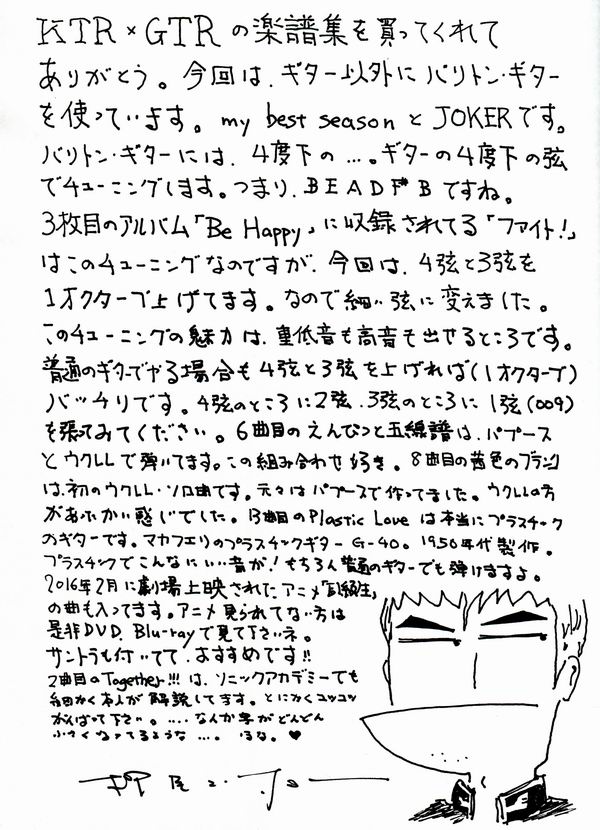 KTR×GTRの楽譜集を買ってくれて
ありがとう。今回は、ギター以外にバリトン・ギター
を使っています。my best seasonとJOKERです。
バリトン・ギターには、4度下の…。ギターの4度下の弦
でチューニングします。つまり、BEADF#Bですね。
3枚目のアルバム「Be Happy」に収録されてる「ファイト!」
はこのチューニングなのですが、今回は、4弦と3弦を
1オクターブ上げてます。なので細い弦に変えました。
このチューニングの魅力は、重低音も高音も出せるところです。
普通のギターでやる場合も4弦と3弦を上げれば(1オクターブ)
バッチリです。4弦のところに2弦、3弦のところに1弦(009)
を張ってみてください。6曲目のえんぴつと五線譜は、パプース
とウクレレで弾いてます。この組み合わせ好き。8曲目の茜色のブランコ
は、初のウクレレ・ソロ曲です。元々はパプースで作ってました。ウクレレの方
があったかい感じでした。13曲目のPlastic Loveは本当にプラスチック
のギターです。マカフェリのプラスチックギターG-40。1950年代製作。
プラスチックでこんなにいい音が!もちろん普通のギターでも弾けますよ。
2016年2月に劇場上映されたアニメ「同級生」
の曲も入ってます。アニメ見られてない方は
是非DVD、Blu-rayで見て下さいネ。
サントラも付いてて、おすすめです!!
2曲目のTogether!!!は、ソニックアカデミーでも
細かく本人が解説してます。とにかくコツコツ
がんばって下さい。….なんか字がどんどん
小さくなってるような…。ほな。♥
押尾コータロー